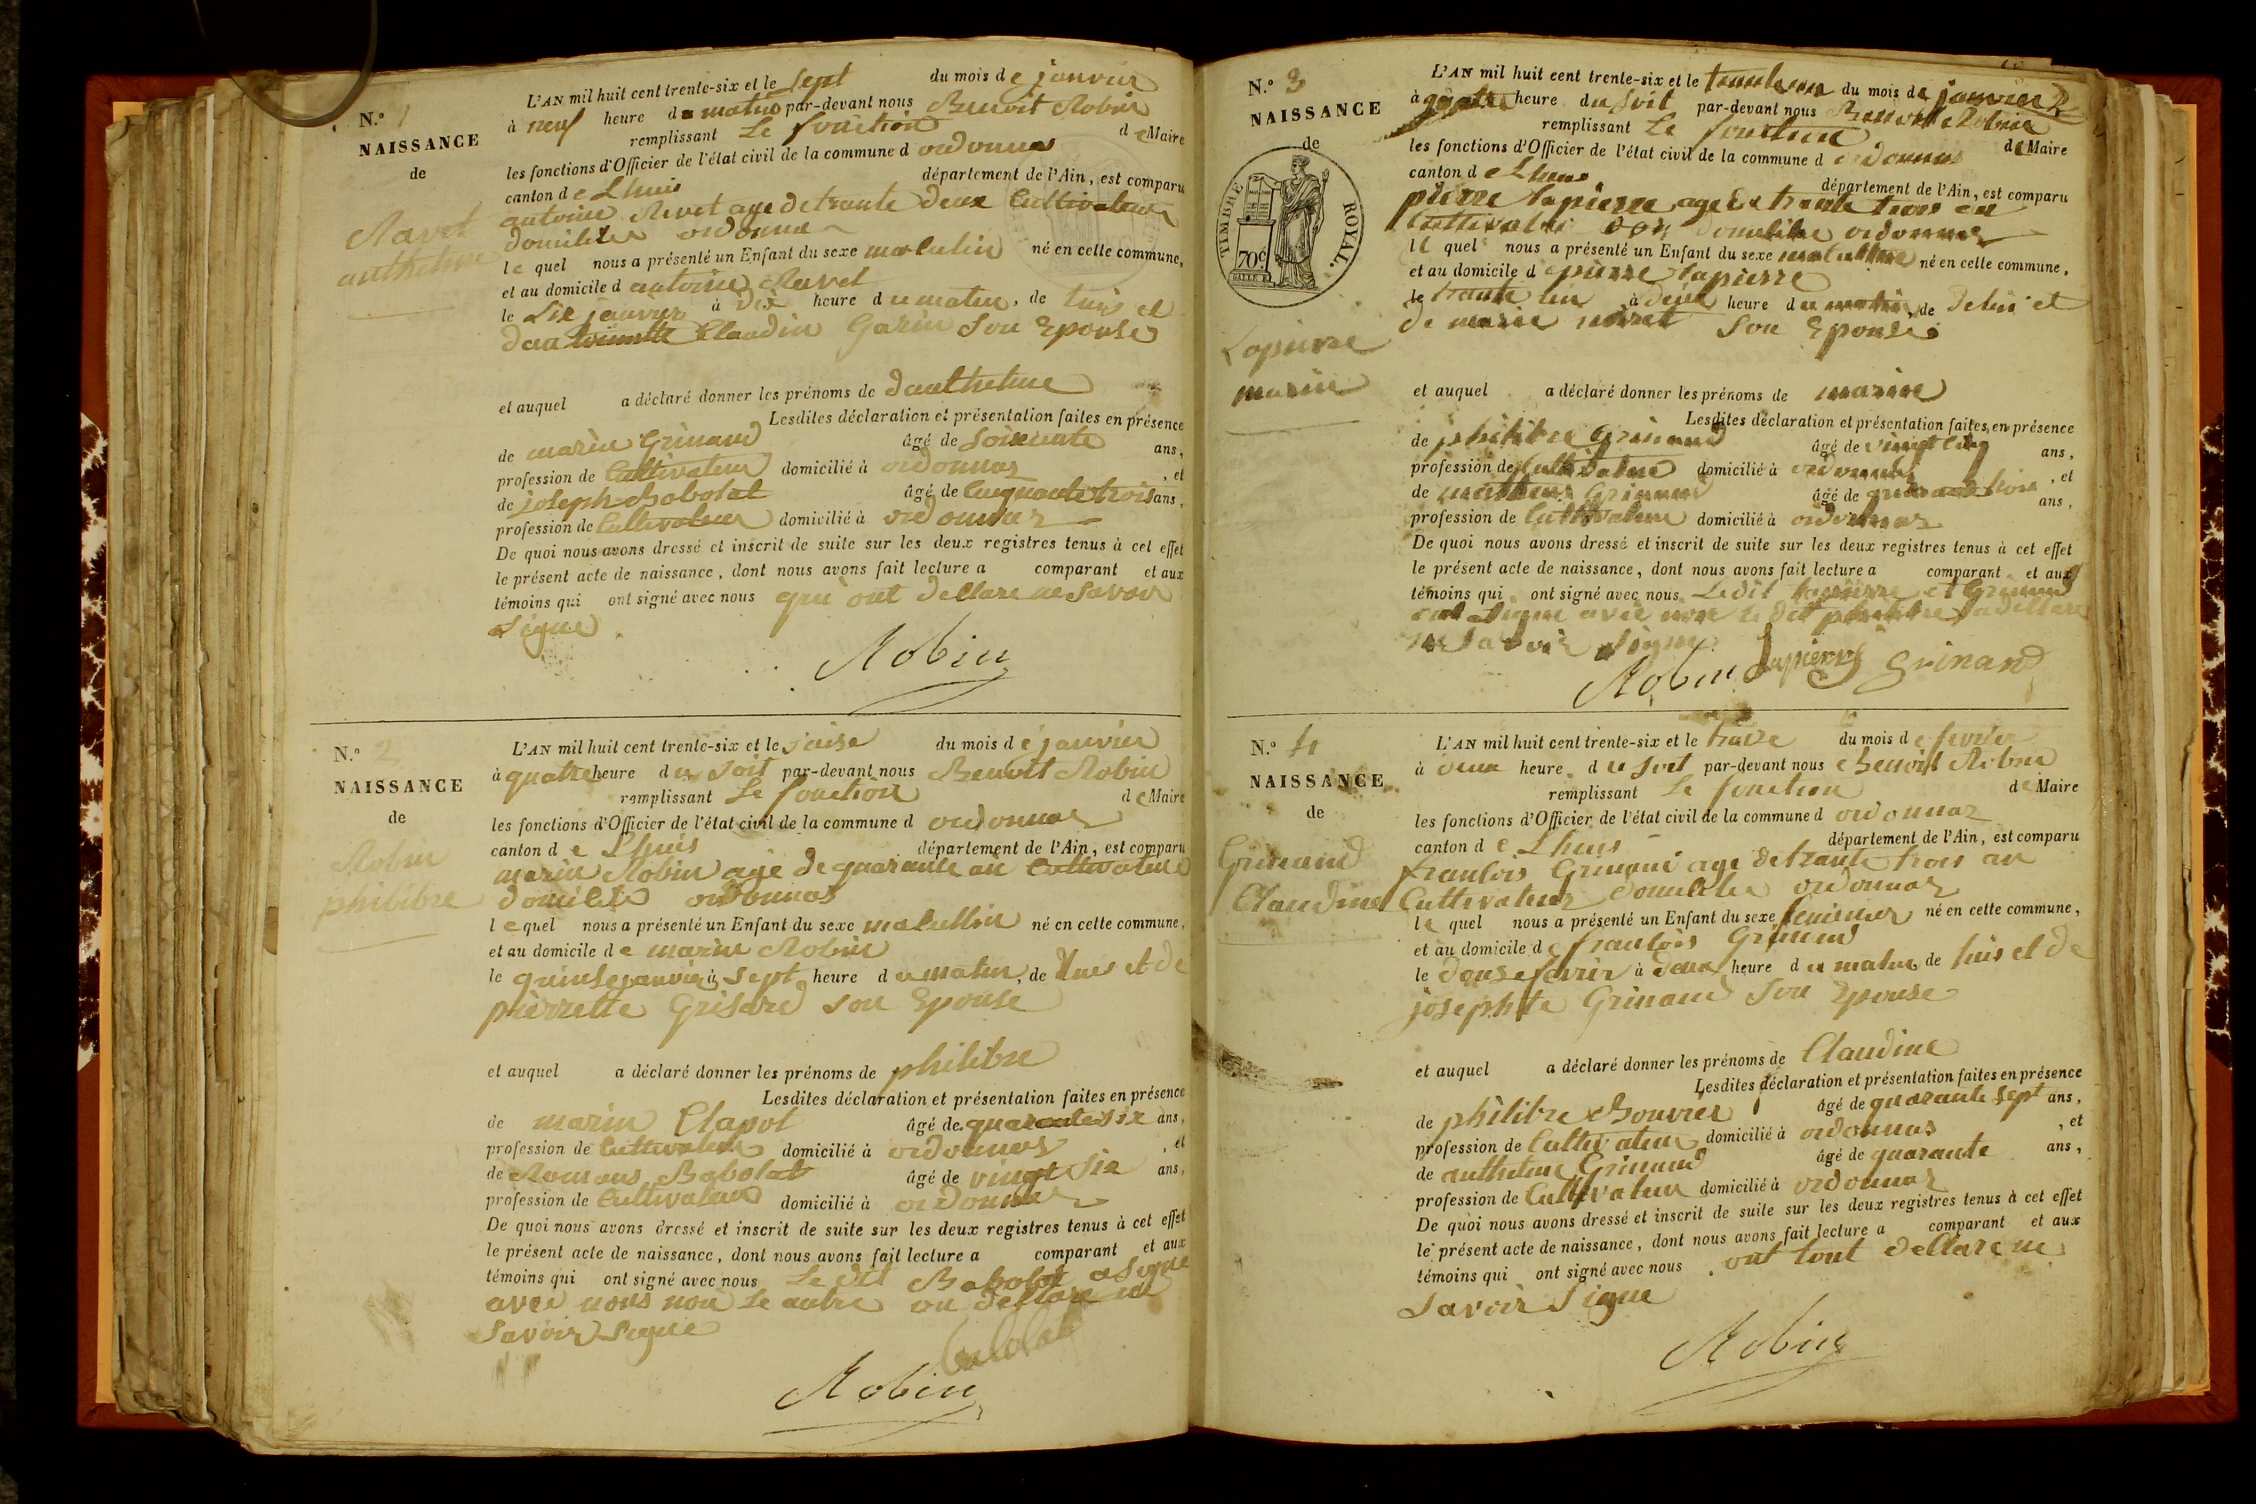 N.° 1
NAISSANCE
de
Ravet
anthelme
L'AN mil huit cent trente-six et le sept du mois de janvier
à neuf heure du matin par-devant nous Benoit Robin
remplissant le fonction de Maire
les fonctions d'Officier de l'état civil de la commune d ordonnas
canton de Lhuis département de l'Ain, est comparu
antoine Revet age de trante deux Cultivateur
domicilié ordonnas
le quel nous a présenté un Enfant du sexe masculin né en cette commune,
et au domicile d antoine Ravet
le six janvier à dix heure du matin, de luis et
Claudin Garin Son Epouse
et auquel a déclaré donner les prénoms de danthelme
Lesdites déclaration et présentation faites en présence
de marin Grinand âgé de soixante ans,
profession de Cultivateur domicilié à ordonnas, et
de joseph Bobolat âgé de cinquante trois ans,
profession de Cultivateur domicilié à ordonnas
De quoi nous avons dressé et inscrit de suite sur les deux registres tenus à cet effet
le présent acte de naissance, dont nous avons fait lecture a comparant et aux
témoins qui ont signé avec nous qui ont dellare ne savoir
signe
Robin
N.° 2
NAISSANCE
de
Robin
philibre
L'AN mil huit cent trente-six et le saise du mois de janvier
à quatre heure du soit par-devant nous Benoit Robin
remplissant le fonction de Maire
les fonctions d'Officier de l'état civil de la commune d ordonnas
canton de Lhuis département de l'Ain, est comparu
marin Robin age de quarante an Cultivateur
domicilié ordonnas
le quel nous a présenté un Enfant du sexe masullin né en cette commune,
et au domicile de marin Robin
le quinse janvier à sept heure du matin, de lui et de
pierrette Grisard son Epouse
et auquel a déclaré donner les prénoms de philibre
Lesdites déclaration et présentation faites en présence
de marin Clapot âgé de quarante six ans,
profession de Cultivateur domicilié à ordonnas, et
de Romans Babolat âgé de vingt six ans,
profession de Cultivateur domicilié à ordonnas
De quoi nous avons dressé et inscrit de suite sur les deux registres tenus à cet effet
le présent acte de naissance, dont nous avons fait lecture a comparant et aux
témoins qui ont signé avec nous Le dit Babolat a signe
avec nous non le autre on dellare ne
savoir signe
Babolat
Robin
N.° 3
NAISSANCE
de
TIMBRE ROYAL.
70c
Lapierre
marin
L'AN mil huit cent trente-six et le du mois de janvier
à quatre heure du soit par-devant nous Benoit Robin
remplissant le fonction de Maire
les fonctions d'Officier de l'état civil de la commune d ordonnas
canton de Lhuis département de l'Ain, est comparu
pierre lapierre age de trante trois an
Cultivateur domicilie ordonnas
le quel nous a présenté un Enfant du sexe né en cette commune,
et au domicile de pierre lapierre
le trante un à deux heure du matin, de de lui et
de marie son Epouse
et auquel a déclaré donner les prénoms de marin
Lesdites déclaration et présentation faites en présence
de philibre Grinand âgé de vingt cinq ans,
profession de Cultivateur domicilié à ordonnas, et
de Grinand âgé de quarante trois ans,
profession de Cultivateur domicilié à ordonnas
De quoi nous avons dressé et inscrit de suite sur les deux registres tenus à cet effet
le présent acte de naissance, dont nous avons fait lecture a comparant et aux
témoins qui ont signé avec nous Le dit lapierre et Grinand
ont signe avec nous le dit philibre a dellare
ne savoir signe
Robin Lapierre Grinand
N.° 4
NAISSANCE
de
Grinand
Claudine
L'AN mil huit cent trente-six et le traise du mois de fevrier
à deux heure du soit par-devant nous Benoit Robin
remplissant le fonction de Maire
les fonctions d'Officier de l'état civil de la commune d ordonnas
canton de Lhuis département de l'Ain, est comparu
franlois Grinand age de trante trois an
Cultivateur domicilie ordonnas
le quel nous a présenté un Enfant du sexe feminin né en cette commune,
et au domicile de franlois Grinand
le douse fevrir à deux heure du matin, de luis et de
josephte Grinand son Epouse
et auquel a déclaré donner les prénoms de Claudine
Lesdites déclaration et présentation faites en présence
de philibre Bouvier âgé de quarante sept ans,
profession de Cultivateur domicilié à ordonnas, et
de anthelme Grinand âgé de quarante ans,
profession de Cultivateur domicilié à ordonnas
De quoi nous avons dressé et inscrit de suite sur les deux registres tenus à cet effet
le présent acte de naissance, dont nous avons fait lecture a comparant et aux
témoins qui ont signé avec nous ont tout dellare ne
savoir signe
Robin